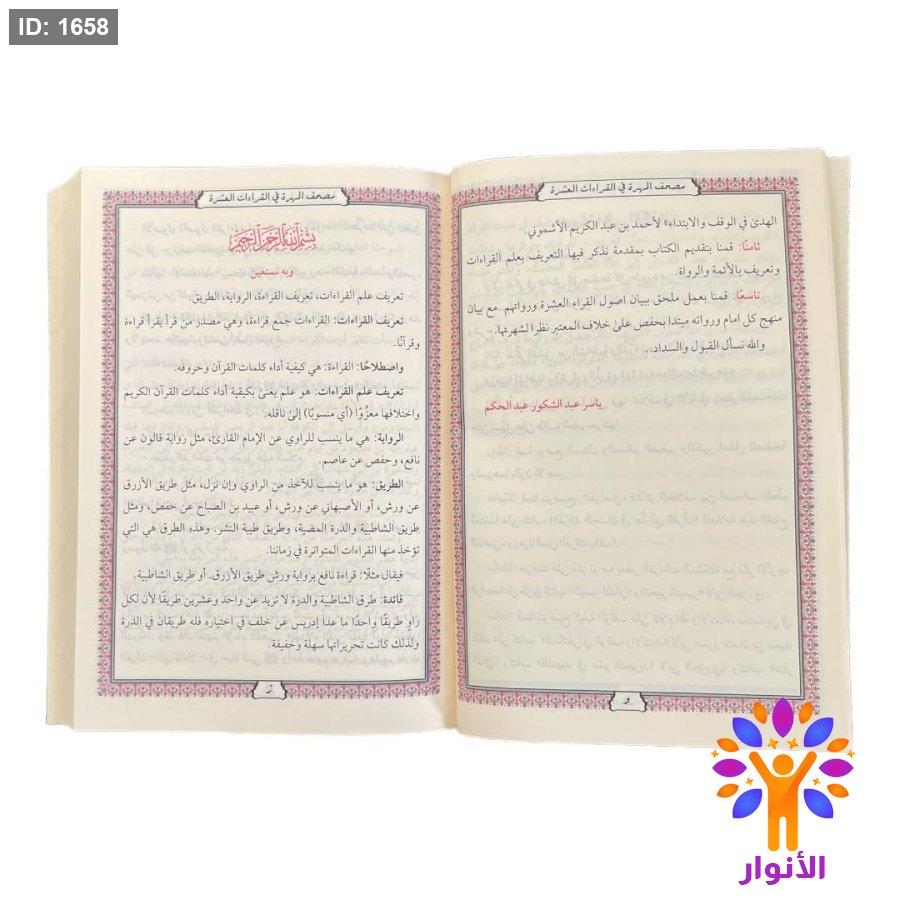 ID: 1658
مصحف المهرة في القراءات العشرة
الهدىٰ في الوقف والابتداء» لأحمد بن عبد الكريم الأشموني.
ثامنًا: قمنا بتقديم الكتاب بمقدمة نذكر فيها التعريف بعلم القراءات
وتعريف بالأئمة والرواة.
تاسعًا: قمنا بعمل ملحق ببيان اصول القراء العشرة ورواتهم. مع بيان
منهج كل امام ورواته مبتدا بحفص علىٰ خلاف المعتبر نظرا لشهرتها.
والله نسأل القبول والسداد..
ياسر عبد الشكور عبد الحكم
و
مصحف المهرة في القراءات العشرة
بسم الله الرحمن الرحيم
وبه نستعين
تعريف علم القراءات، تعريف القراءة، الرواية، الطريق.
تعريف القراءات: القراءات جمع قراءة، وهي مصدر من قرأ يقرأ قراءة
وقرآنًا.
واصطلاحًا: القراءة: هي كيفية أداء كلمات القرآن وحروفه.
تعريف علم القراءات: هو علم يعنىٰ بكيفية أداء كلمات القرآن الكريم
واختلافها معزُوًّا (أي منسوبًا) إلىٰ ناقله.
الرواية: هي ما ينسب للراوي عن الإمام القارئ، مثل رواية قالون عن
نافع، وحفص عن عاصم.
الطريق: هو ما ينسب للآخذ من الراوي وإن نزل، مثل طريق الأزرق
عن ورش، أو الأصبهاني عن ورش، أو عبيد بن الصباح عن حفص، ومثل
طريق الشاطبية والدرة المضية، وطريق طيبة النشر. وهذه الطرق هي التي
تؤخذ منها القراءات المتواترة في زماننا.
فيقال مثلًا: قراءة نافع برواية ورش طريق الأزرق. أو طريق الشاطبية.
فائدة: طرق الشاطبية والدرة لا تزيد عن واحد وعشرين طريقًا لأن لكل
راوٍ طريقًا واحدًا ما عدا إدريس عن خلف في اختياره فله طريقان في الدرة
ولذلك كانت تحريراتها سهلة وخفيفة.
ز
الأنوار